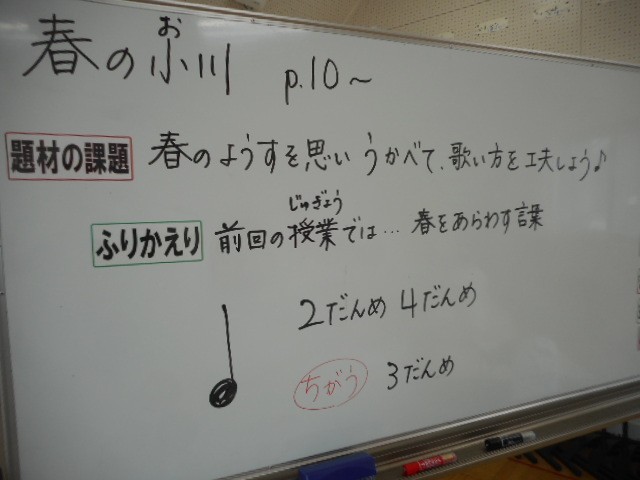 春の小川 p.10~
お
題材の課題 春のようすを思いうかべて、歌い方を工夫しよう♪
じゅぎょう
ふりかえり 前回の授業では… 春をあらわす言葉
2だんめ 4だんめ
ちがう 3だんめ